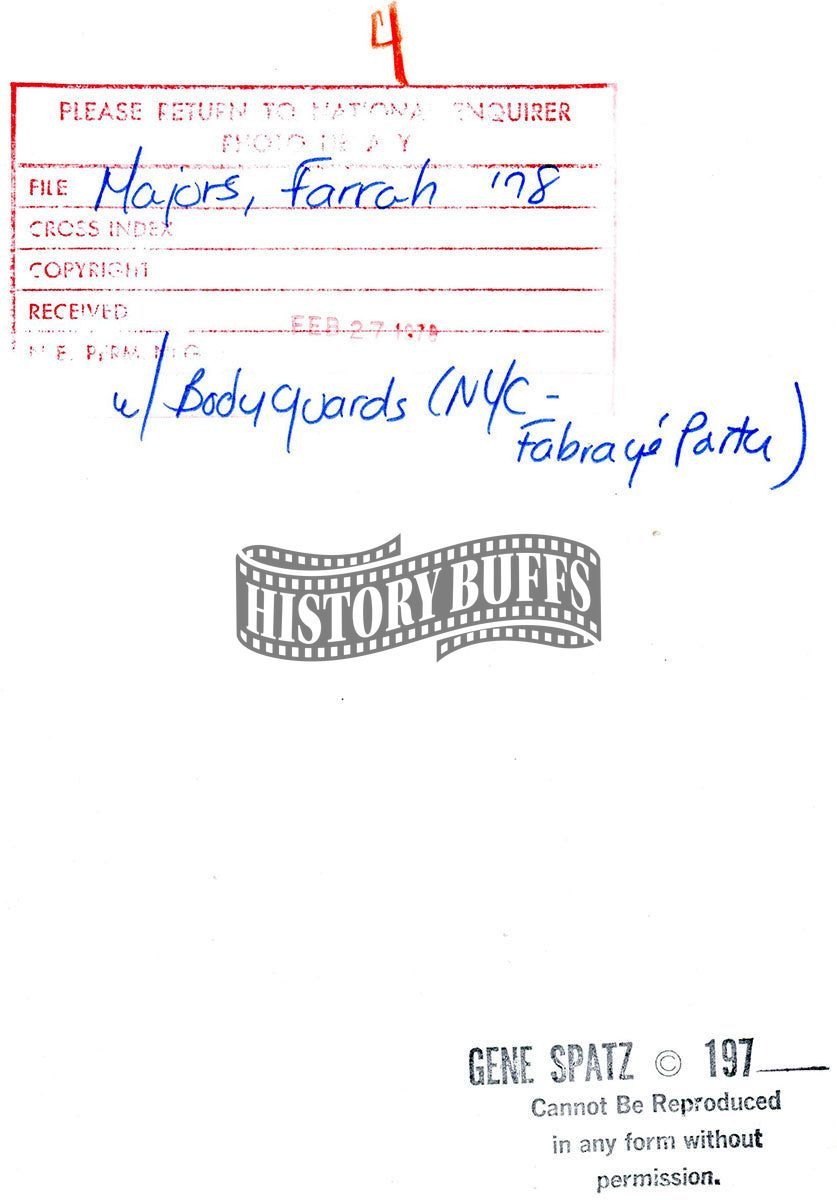 4
PLEASE RETURN TO NATIONAL ENQUIRER
PHOTO LIBRARY
FILE Majors, Farrah '78
CROSS INDEX
COPYRIGHT
RECEIVED FEB 27 1978
N.E. PERM. NEG.
w/ Bodyguards (NYC -
Fabragé Party)
HISTORY BUFFS
GENE SPATZ © 197
Cannot Be Reproduced
in any form without
permission.